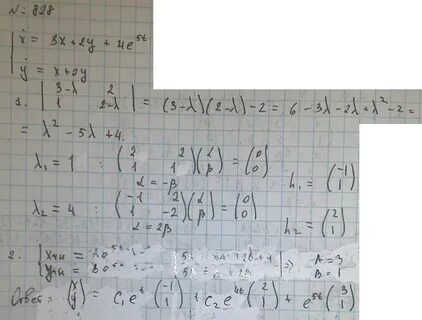 № 828
{ ẋ = 3x + 2y + 4e^{5t}
ẏ = x + 2y
1. | 3-λ 2 ; 1 2-λ | = (3-λ)(2-λ) - 2 = 6 - 3λ - 2λ + λ² - 2 =
= λ² - 5λ + 4.
λ₁ = 1 : (2 2 ; 1 1)(α ; β) = (0 ; 0) h₁ = (-1 ; 1)
α = -β
λ₂ = 4 : (-1 2 ; 1 -2)(α ; β) = (0 ; 0) h₂ = (2 ; 1)
α = 2β
2. { xчн = Ae^{5t} ⇒ A = 3
yчн = Be^{5t} B = 1
Ответ: (x ; y) = C₁e^{t}(-1 ; 1) + C₂e^{4t}(2 ; 1) + e^{5t}(3 ; 1)